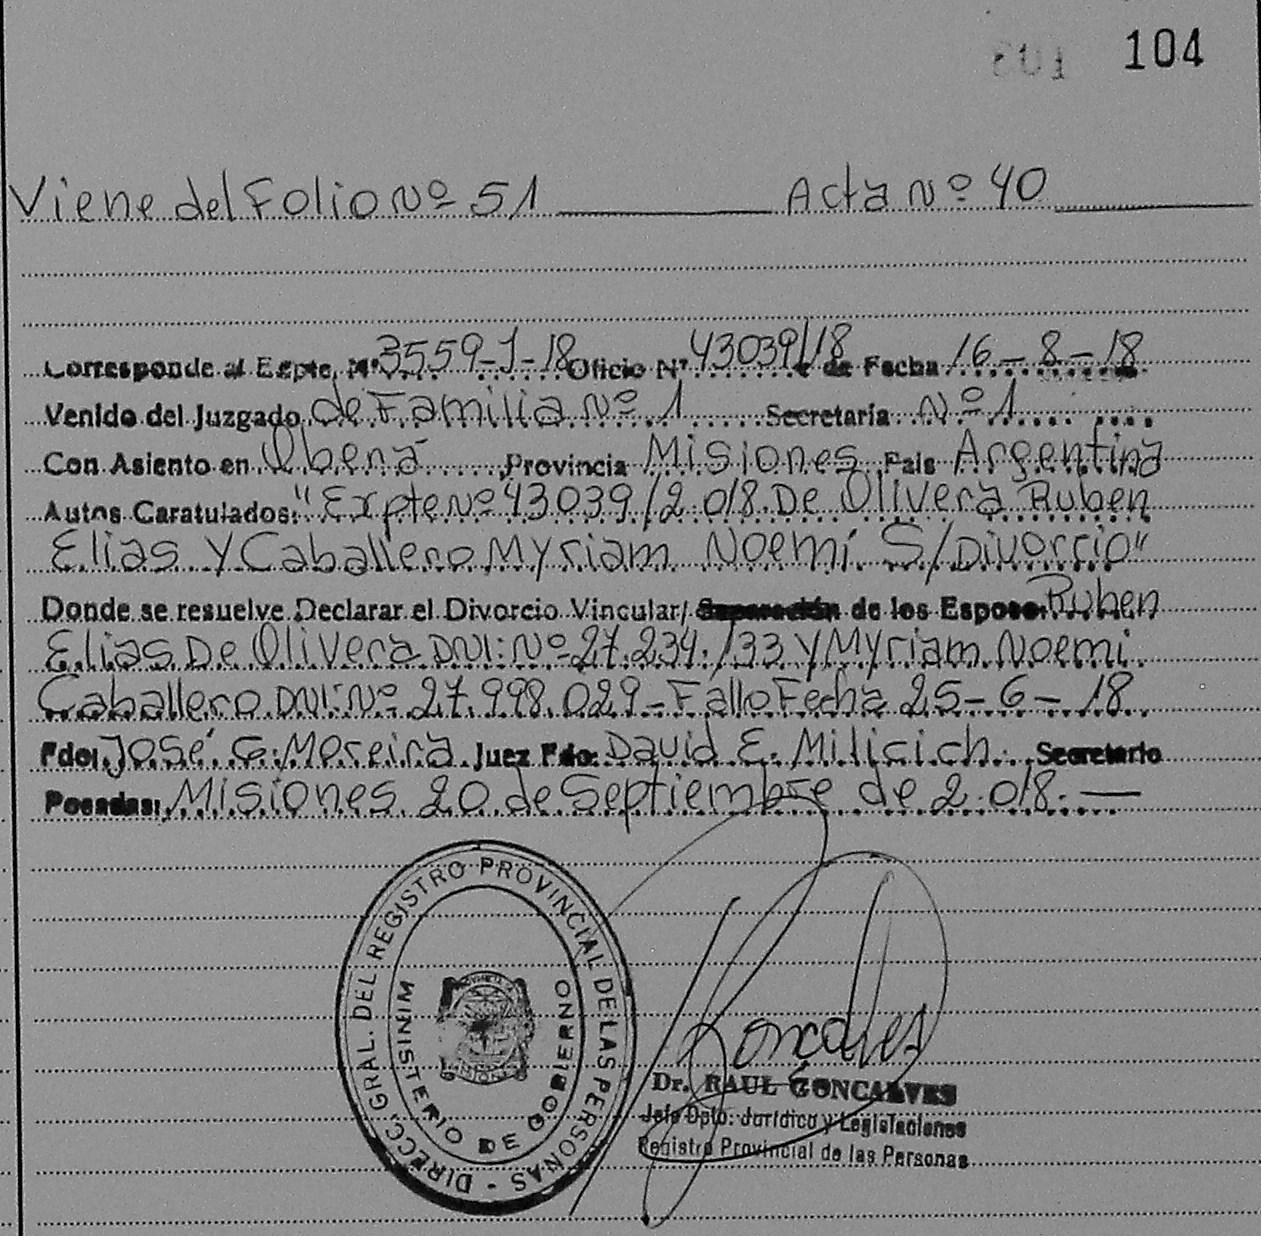 104
Viene del Folio Nº 51 Acta Nº 40
Corresponde al Expte. Nº 3559-J-18 Oficio Nº 43039/18 de Fecha 16-8-18
Venido del Juzgado de Familia Nº 1 Secretaria Nº 1
Con Asiento en Oberá Provincia Misiones Pais Argentina
Autos Caratulados: "Expte Nº 43039/2.018. De Olivera Ruben
Elias Y Caballero Myriam Noemí S/Divorcio"
Donde se resuelve Declarar el Divorcio Vincular/ Separación de los Esposos: Ruben
Elias De Olivera DNI: Nº 27.234.733 y Myriam Noemi
Caballero DNI: Nº 27.998.029 - Fallo Fecha 25-6-18
Fdo: José G. Moreira Juez Fdo: David E. Milicich. Secretario
Posadas: Misiones 20 de Septiembre de 2.018. —
DIRECC. GRAL. DEL REGISTRO PROVINCIAL DE LAS PERSONAS -
MINISTERIO DE GOBIERNO
Goncalves
Dr. RAUL GONCALVES
Jefe Dpto. Jurídico y Legislaciones
Registro Provincial de las Personas